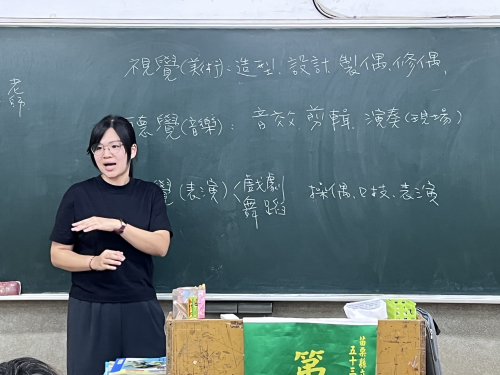 視覺(美術):造型、設計、製偶、修偶,
聽覺(音樂): 音效、剪輯、演奏(現場)
覺(表演)〈戲劇 操偶、口技、表演
舞蹈
老師
苗栗縣
五十三
第